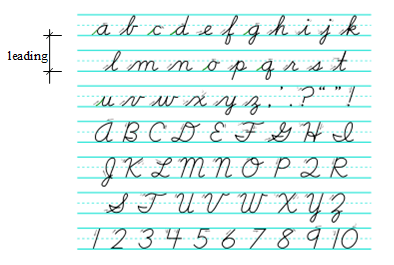 a b c d e f g h i j k
leading
l m n o p q r s t
u v w x y z , ' . ? “ ” !
A B C D E F G H I
J K L M N O P Q R
S T U V W X Y Z
1 2 3 4 5 6 7 8 9 10